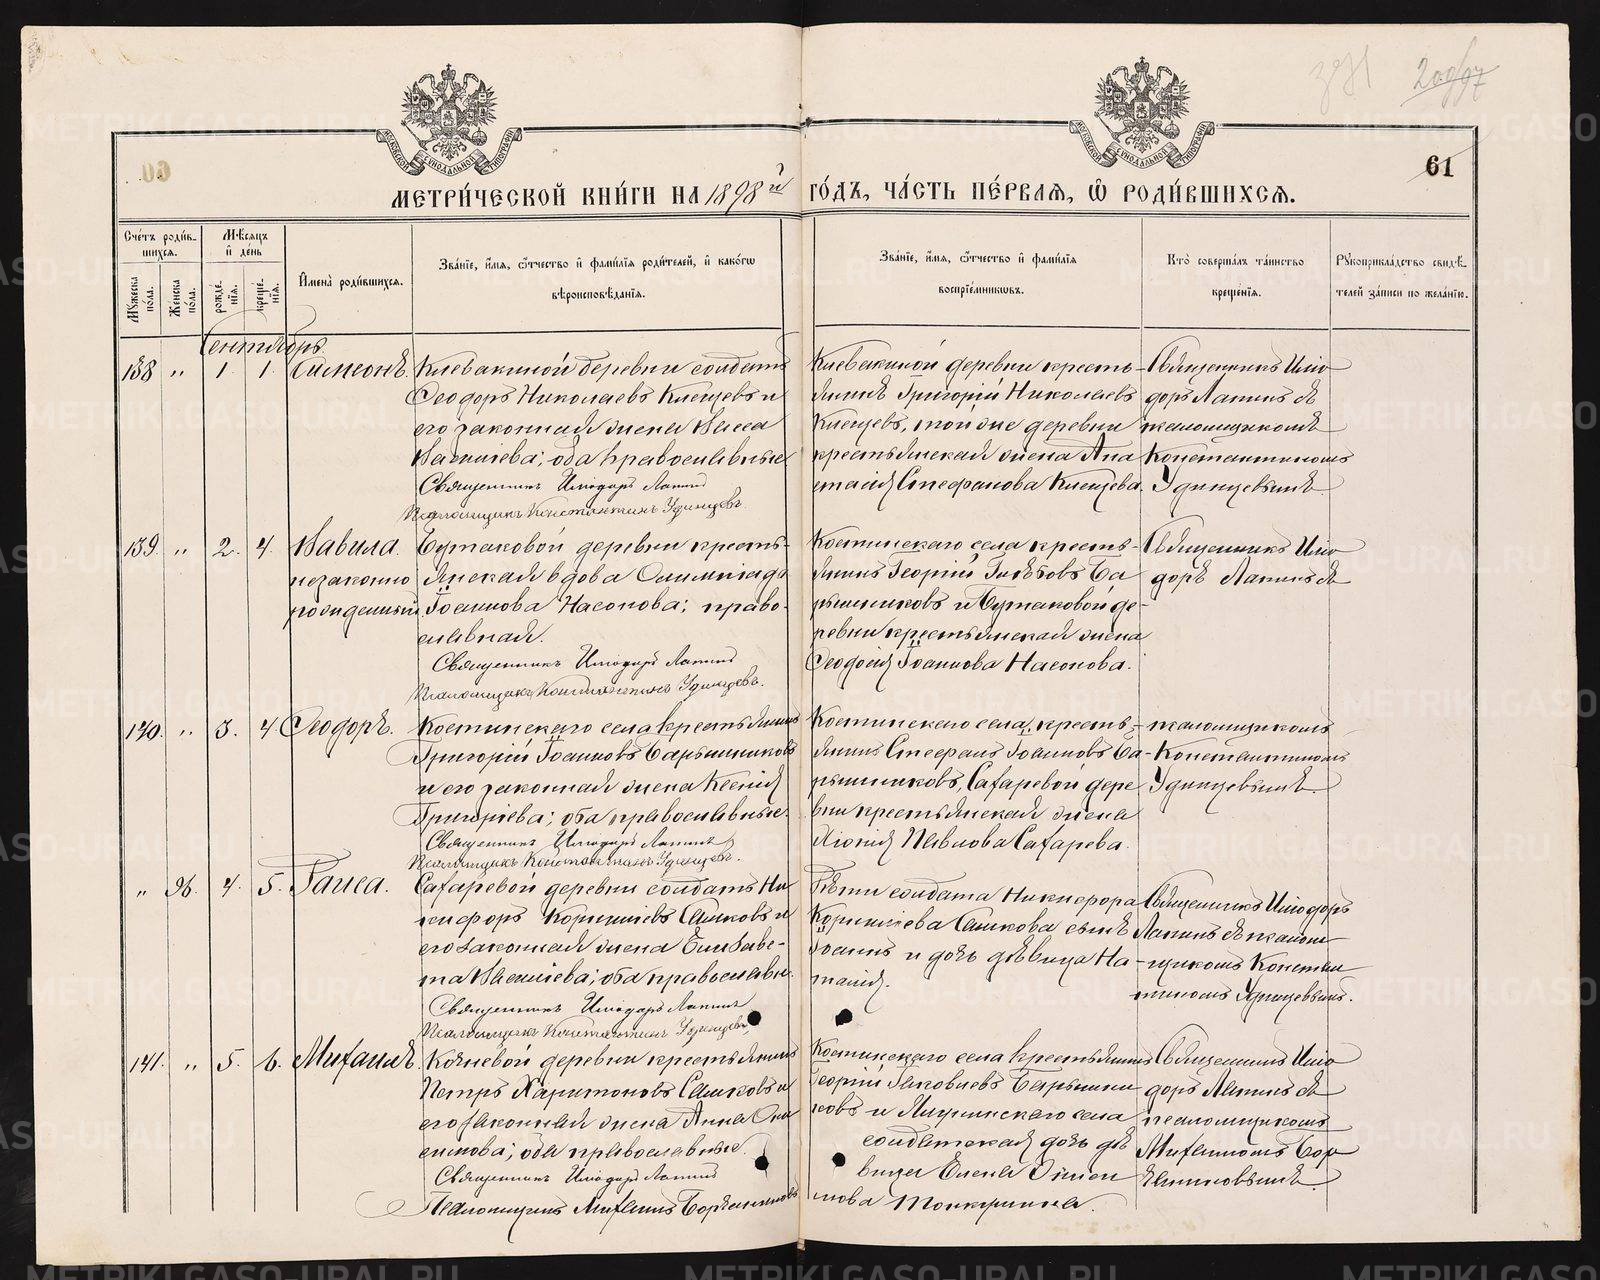 МЕТРИ́ЧЕСКОЙ КНИ́ГИ НА 1898й ГО́ДЪ, ЧА́СТЬ ПЕ́РВАѦ, Ѡ РОДИ́ВШИХСѦ.
61
Сче́тъ роди́вшихсѧ.
Мꙋ́жеска по́ла.
Же́нска по́ла.
Мѣ́сѧцъ и҆ де́нь
рожде́нїѧ.
креще́нїѧ.
И҆мена̀ роди́вшихсѧ.
Зва́нїе, и҆́мѧ, ѻ҆́тчество и҆ фами́лїѧ роди́телей, и҆ како́гѡ вѣроисповѣ́данїѧ.
Зва́нїе, и҆́мѧ, ѻ҆́тчество и҆ фами́лїѧ воспрїе́мникѡвъ.
Кто̀ соверша́лъ та́инство креще́нїѧ.
Рꙋкоприкла́дство свидѣ́телей за́писи по жела́нїю.
Сентябрь
138 " 1. 1. Симеонъ.
Клевакиной деревни солдатъ
Ѳеодоръ Николаевъ Клещевъ и
его законная жена Васса
Василиева; оба православные
Священникъ Илиодоръ Лапинъ
Псаломщикъ Константинъ Удинцевъ.
Клевакиной деревни кресть-
янинъ Григорій Николаевъ
Клещевъ, той же деревни
крестьянская жена Ана
стасія Стефанова Клещева.
Священникъ Илио
доръ Лапинъ съ
псаломщикомъ
Константиномъ
Удинцевымъ.
139. " 2. 4. Вавила.
незаконно
рожденный
деревни кресть-
янская вдова Олимпіада
Іоаннова Насонова; право-
славная.
Священникъ Илиодоръ Лапинъ
Псаломщикъ Константинъ Удинцевъ.
Костинскаго села кресть-
янинъ Георгій Глѣбовъ Ба
рышниковъ и де-
ревни крестьянская жена
Ѳеодосія Іоаннова Насонова.
Священникъ Илио
доръ Лапинъ съ
140. " 3. 4 Ѳеодоръ.
Костинскаго села крестьянинъ
Григорій Іоанновъ Барышниковъ
и его законная жена Ксенія
Григоріева; оба православные.
Священникъ Илиодоръ Лапинъ
Псаломщикъ Константинъ Удинцевъ.
Костинскаго села кресть-
янинъ Стефанъ Іоанновъ Ба-
рышниковъ, Сахаревой дере
вни крестьянская жена
Павлова Сахарева.
псаломщикомъ
Константиномъ
Удинцевымъ.
" 96. 4. 5. Раиса.
Сахаревой деревни солдатъ Ни
кифоръ Корниліевъ Санковъ и
его законная жена Елисаве-
та Василіева; оба православн.
Священникъ Илиодоръ Лапинъ
Псаломщикъ Константинъ Удинцевъ
Дѣти солдата Никифора
Корниліева Санкова сынъ
Іоаннъ и дочь дѣвица На-
талія.
Священникъ Илиодоръ
Лапинъ съ псалом
щикомъ Констан
тиномъ Удинцевымъ.
141. " 5. 6. Михаилъ.
деревни крестьянинъ
Петръ Харитоновъ Санковъ и
его законная жена Анна
оба православные.
Священникъ Илиодоръ Лапинъ
Псаломщикъ Михаилъ
Костинскаго села крестьянинъ
Георгій Іаковлевъ Барышни
ковъ и села
солдатская дочь дѣ
вица Елена
нова
Священникъ Илио
доръ Лапинъ съ
псаломщикомъ
Михаиломъ